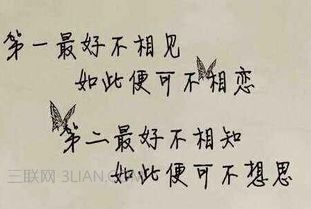 第一最好不相见
如此便可不相恋
第二最好不相知
如此便可不想思
三联网 3LIAN.COM